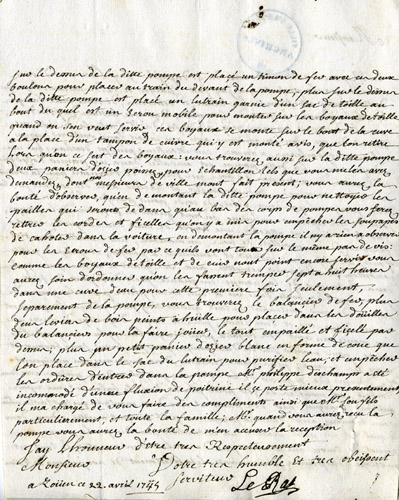 sur le dessus de la ditte pompe est placé un timon de fer avec ces deux
boulons pour placer au train du devant de la pompe; plus sur le dessus
de la ditte pompe est placé un lutrain garnie d'un sac de toille au
bout du quel est un ecrou mobile pour monter sur les boyaux de toille
quand on sen veut servir ces boyaux se monte sur le bout de la cuve
a la place d'un tampon de cuivre qui y est monté avis, que lon retire
lors quon ce sert des boyaux; vous trouverez aussi sur la ditte pompe
deux paniers dozier poissez pour echantillon tels que vous mavez
demandez, dont mrs de ville mont fait present; vous aurez la
bonté d'observer, quen demontant la ditte pompe pour nettoyer les
pailles qui seront dedans qu'au bas du corps de pompe vous ferez
retirer les cordes et ficelles quon y a mis pour empecher les soupapes
de cahoter dans la voiture, en demontant la pompe il ny a rien a observer
pour les ecrous de fer parce quils vont tous sur le même pas de vis;
comme les boyaux de toille et de cuir nont point encore servis vous
aurez soin dordonner quon les fassent tremper sept a huit heures
dans une cuve deau pour cette premiere fois seulement;
separement de la pompe, vous trouverez le balancier de fer, plus
deux levier de bois peints a huille pour placer dans les douilles
du balancier pour la faire jouer, le tout empaillé et ficelé par
dessus; plus un petit panier dozier blanc en forme de cone que
lon place dans le sac du lutrain pour purifier leau, et empecher
les ordures d'entrer dans la pompe Mr. philippe deschamps a eté
incomodé d'une fluxion de poitrine il se porte mieux presentement,
il ma chargé de vous faire des compliments ainsi que Mr. son fils
particulierement, et toute la famille; Mr. quand vous aurez recu la
pompe vous aurez la bonté de men accuser la reception
Jay L'honneur d'être tres Respectueusement
Monsieur Votre tres humble et tres obeissent
a Roüen ce 22. avril 1745 serviteur Le Rat